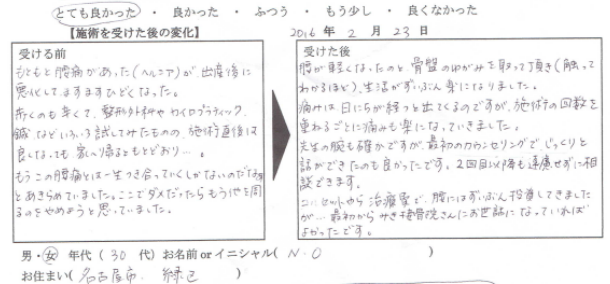 とても良かった ・ 良かった ・ ふつう ・ もう少し ・ 良くなかった
【施術を受けた後の変化】 2016年 2月 23日
受ける前
もともと腰痛があった(ヘルニア)が、出産後に
悪化して、ますますひどくなった。
歩くのも辛くて、整形外科や カイロプラティック、
鍼 などいろいろ試してみたものの、施術直後は
良くなっても 家へ帰るともとどおり…。
もうこの腰痛とは一生つき合っていくしかないのだな
とあきらめていました。ここでダメだったらもう他を周
るのをやめようと思っていました。
受けた後
腰が軽くなったのと 骨盤のゆがみを取って頂き(触って
わかるほど)、生活がずいぶん 身になりました。
痛みは 日にちが経つと出てくるのですが、施術の回数を
重ねるごとに痛みも楽になっていきました。
先生の腕も確かですが、最初のカウンセリングで、じっくりと
話ができたのも良かったです。2回目以降も遠慮せずに相
談できます。
治療室で、腰にはずいぶん投資してきました
が… 最初から みき接骨院さんにお世話になっていれば
よかったです。
男・女 年代(30代)お名前orイニシャル( N.O )
お住まい( 名古屋市 緑区 )